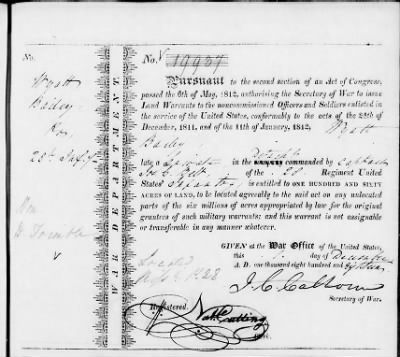 No.
Wyatt
Bailey
28th Inf'y
WAR DEPARTMENT
No. 19957
Pursuant to the second section of an Act of Congress,
passed the 6th of May, 1812, authorising the Secretary of War to issue
Land Warrants to the noncommissioned Officers and Soldiers enlisted in
the service of the United States, conformably to the acts of the 24th
December, 1811, and of the 11th January, 1812, Wyatt
Bailey
late a in the commanded by Captain
of the 28 Regiment United
States' Infantry is entitled to ONE HUNDRED AND SIXTY
ACRES OF LAND, to be located agreeably to the said act on any unlocated
parts of the six millions of acres appropriated by law for the original
grantees of such military warrants; and this warrant is not assignable
or transferable in any manner whatever.
GIVEN at the War Office of the United States,
this day of
A. D. one thousand eight hundred and
Located
1828
J. C. Calhoun
Secretary of War.
Registered